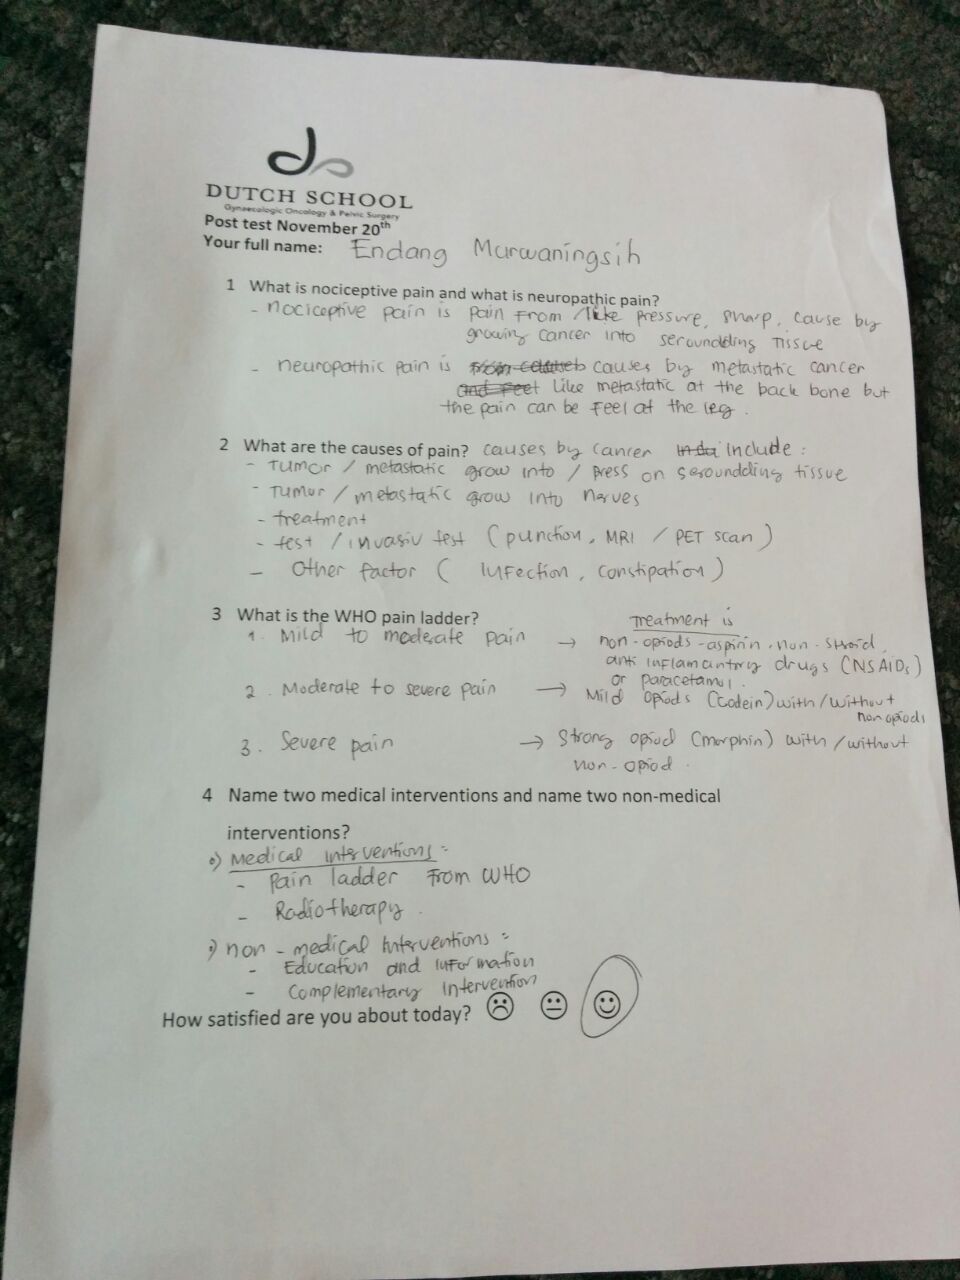 DUTCH SCHOOL
Gynaecologic Oncology & Pelvic Surgery
Post test November 20th
Your full name: Endang Murwaningsih
1 What is nociceptive pain and what is neuropathic pain?
- nociceptive pain is pain from / like pressure, sharp, cause by
growing cancer into seroundding tissue
- neuropathic pain is causes by metastatic cancer
and feel like metastatic at the back bone but
the pain can be feel at the leg.
2 What are the causes of pain? causes by cancer include :
- Tumor / metastatic grow into / press on seroundding tissue
- Tumor / metastatic grow into nerves
- treatment
- test / invasiv test (punction, MRI / PET scan)
- Other factor ( infection, constipation)
3 What is the WHO pain ladder? Treatment is
1. Mild to moderate pain → non-opiods - aspirin, non-stroid,
anti inflamantory drugs (NSAIDs)
or paracetamol.
2. Moderate to severe pain → Mild opiods (codein) with/without
non opiods
3. Severe pain → Strong opiod (morphin) with/without
non-opiod.
4 Name two medical interventions and name two non-medical
interventions?
•) Medical interventions :
- Pain ladder from WHO
- Radiotherapy.
•) non-medical interventions :
- Education and information
- Complementary intervention
How satisfied are you about today?